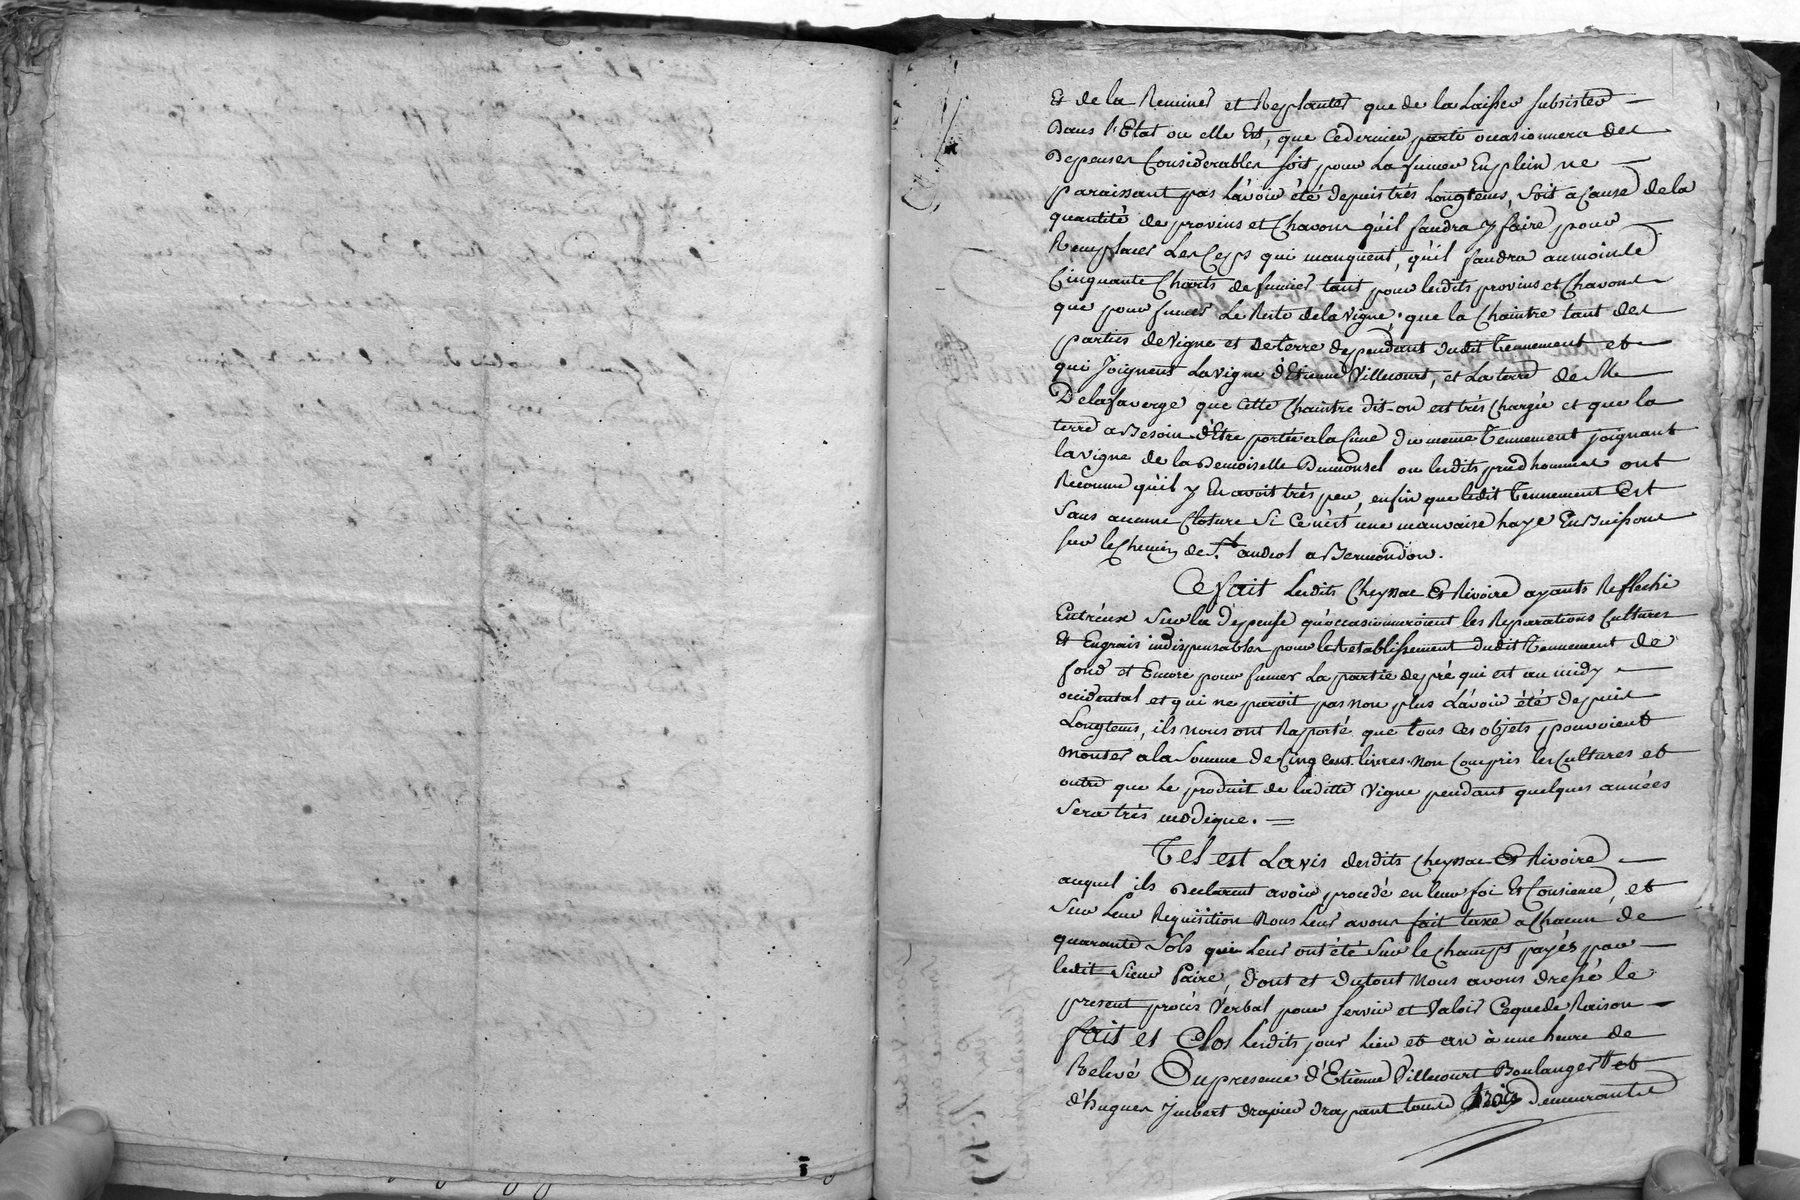 Et de la Reminer et Replanter que de la Laisser subsister
Dans l'Etat ou elle Est, que Cedernier parti ocasionnera des
Depenses Considerables soit pour La fumer En plein ne
paraissant pas L'avoir été depuis trés Longtems, soit a Cause de la
quantité de provins et Chavons qu'il faudra y faire pour
Remplacer Les Ceps qui manquent, qu'il faudra aumoins
Cinquante Charts de fumier tant pour lesdits provins et Chavons
que pour fumer Le Reste delaVigne. que la Chaintre tant des
parties de Vigne et de terre dependant dudit Tennement et
qui Joignent La Vigne d'Etienne Villecourt, et La terre de Me
Delafaverge que Cette Chaintre dit-on est trés Chargée et que la
terre a Besoin d'Etre portée a la Cime du meme Tennement joignant
la Vigne de la Demoiselle Dumonsel ou lesdits prudhommes ont
Reconnu qu'il y En avoit trés peu, enfin que ledit Tennement Est
Sans aucune Cloture Si Ce n'est une mauvaise haye En Buissons
sur le Chemin de St. andeol a Bermondon.
Ce fait Lesdits Cheyssac Et Rivoire ayants Reflechi
Entr'eux Sur la Depense qu'occasionneroient les Reparations Cultures
Et Engrais indispensables pour le Retablissement dudit Tennement de
fond et Encore pour fumer La partie de pré qui est au midy
occidental et qui ne paroit pas non plus L'avoir été depuis
Longtems, ils nous ont Raporté que tous Ces objets pouvoient
monter a la Somme de Cinq cent livres. Non Compris les Cultures et
outre que Le produit de laditte Vigne pendant quelques années
Sera trés modique.
Tel est L'avis desdits Cheyssac Et Rivoire
auquel ils Declarent avoir procedé en leur foi Et Consience, et
Sur Leur Requisition Nous Leur avons fait taxe a Chacun de
quarante Sols qui Leur ont été Sur le Champs payés par
ledit Sieur Paire, dont et du tout Nous avons dressé le
present procés Verbal pour Servir et Valoir Ceque de Raison
fait et Clos Lesdits jour Lieu et an à une heure de
Relevé En presence d'Etienne Villecourt Boulanger et
d'hugues Jmbert drapier drapant tous trois demeurants